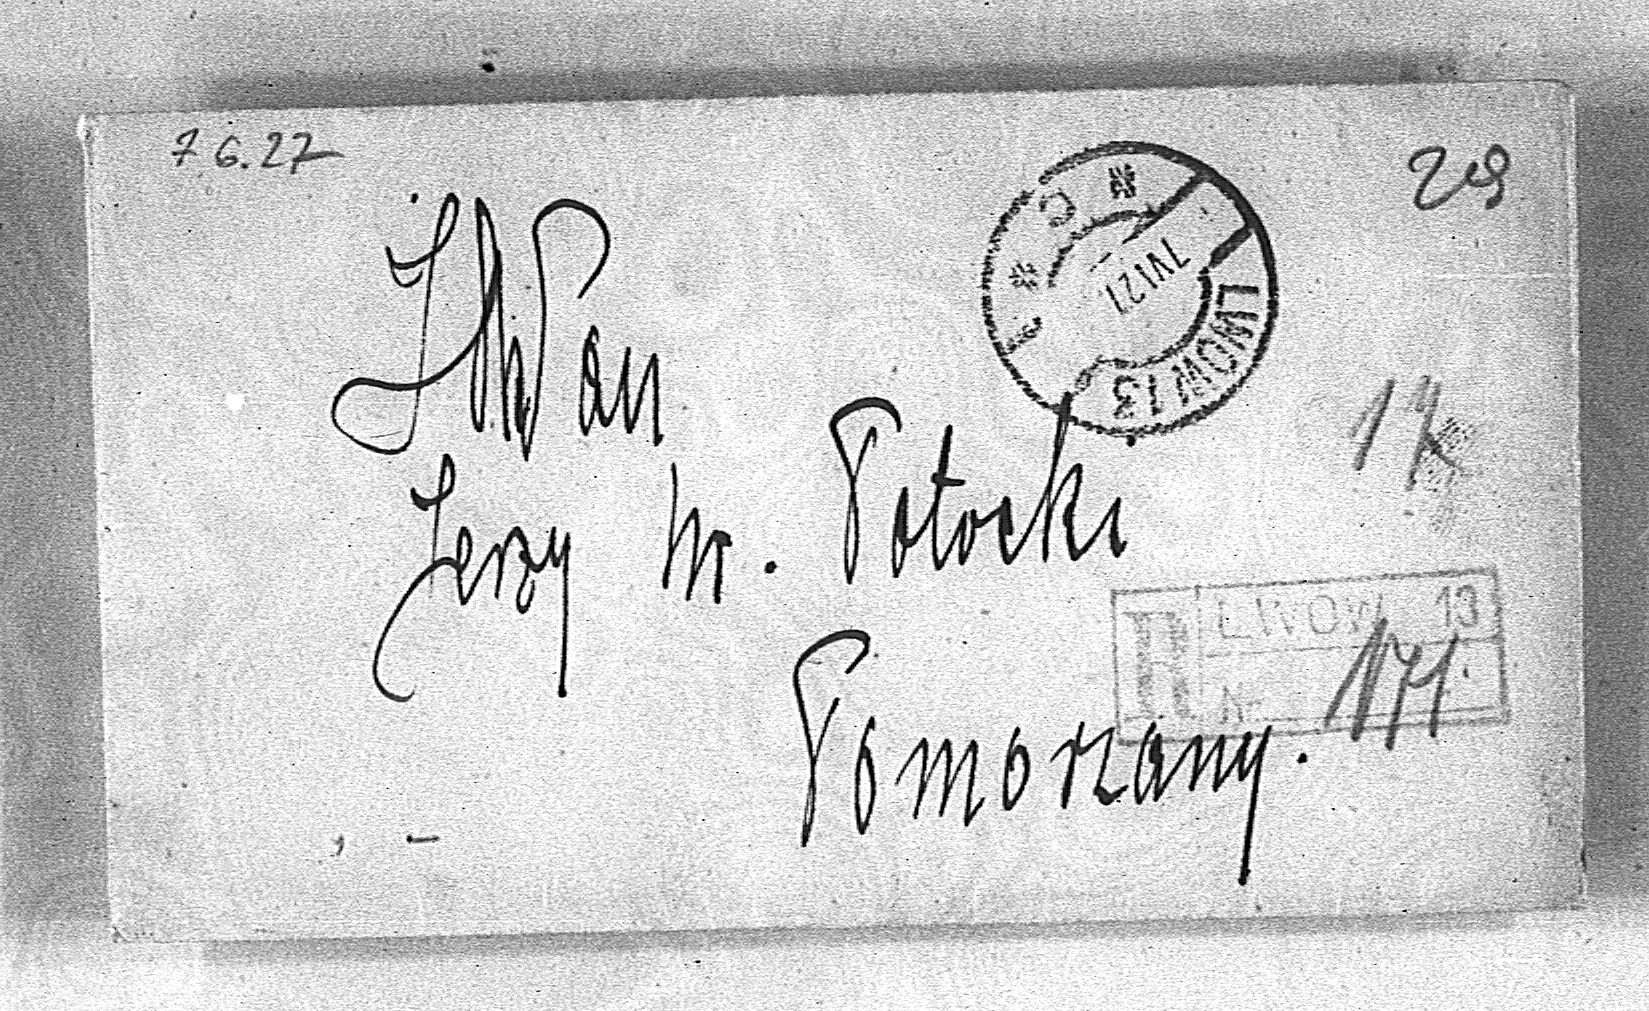 7 6. 27
29
LWÓW 13
7 VI 27
* C *
JWPan
17
Jerzy hr. Potocki
R LWÓW 13
Nr 171
Pomorzany.